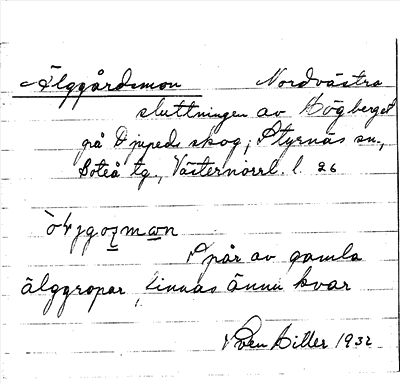 Älggårdsmon Nordvästra
sluttningen av Högberget
på Djupeds skog, Styrnäs sn.,
Boteå tg., Västernorrl. l. 26
Spår av gamla
älggropar finnas ännu kvar
Sven Hiller 1932